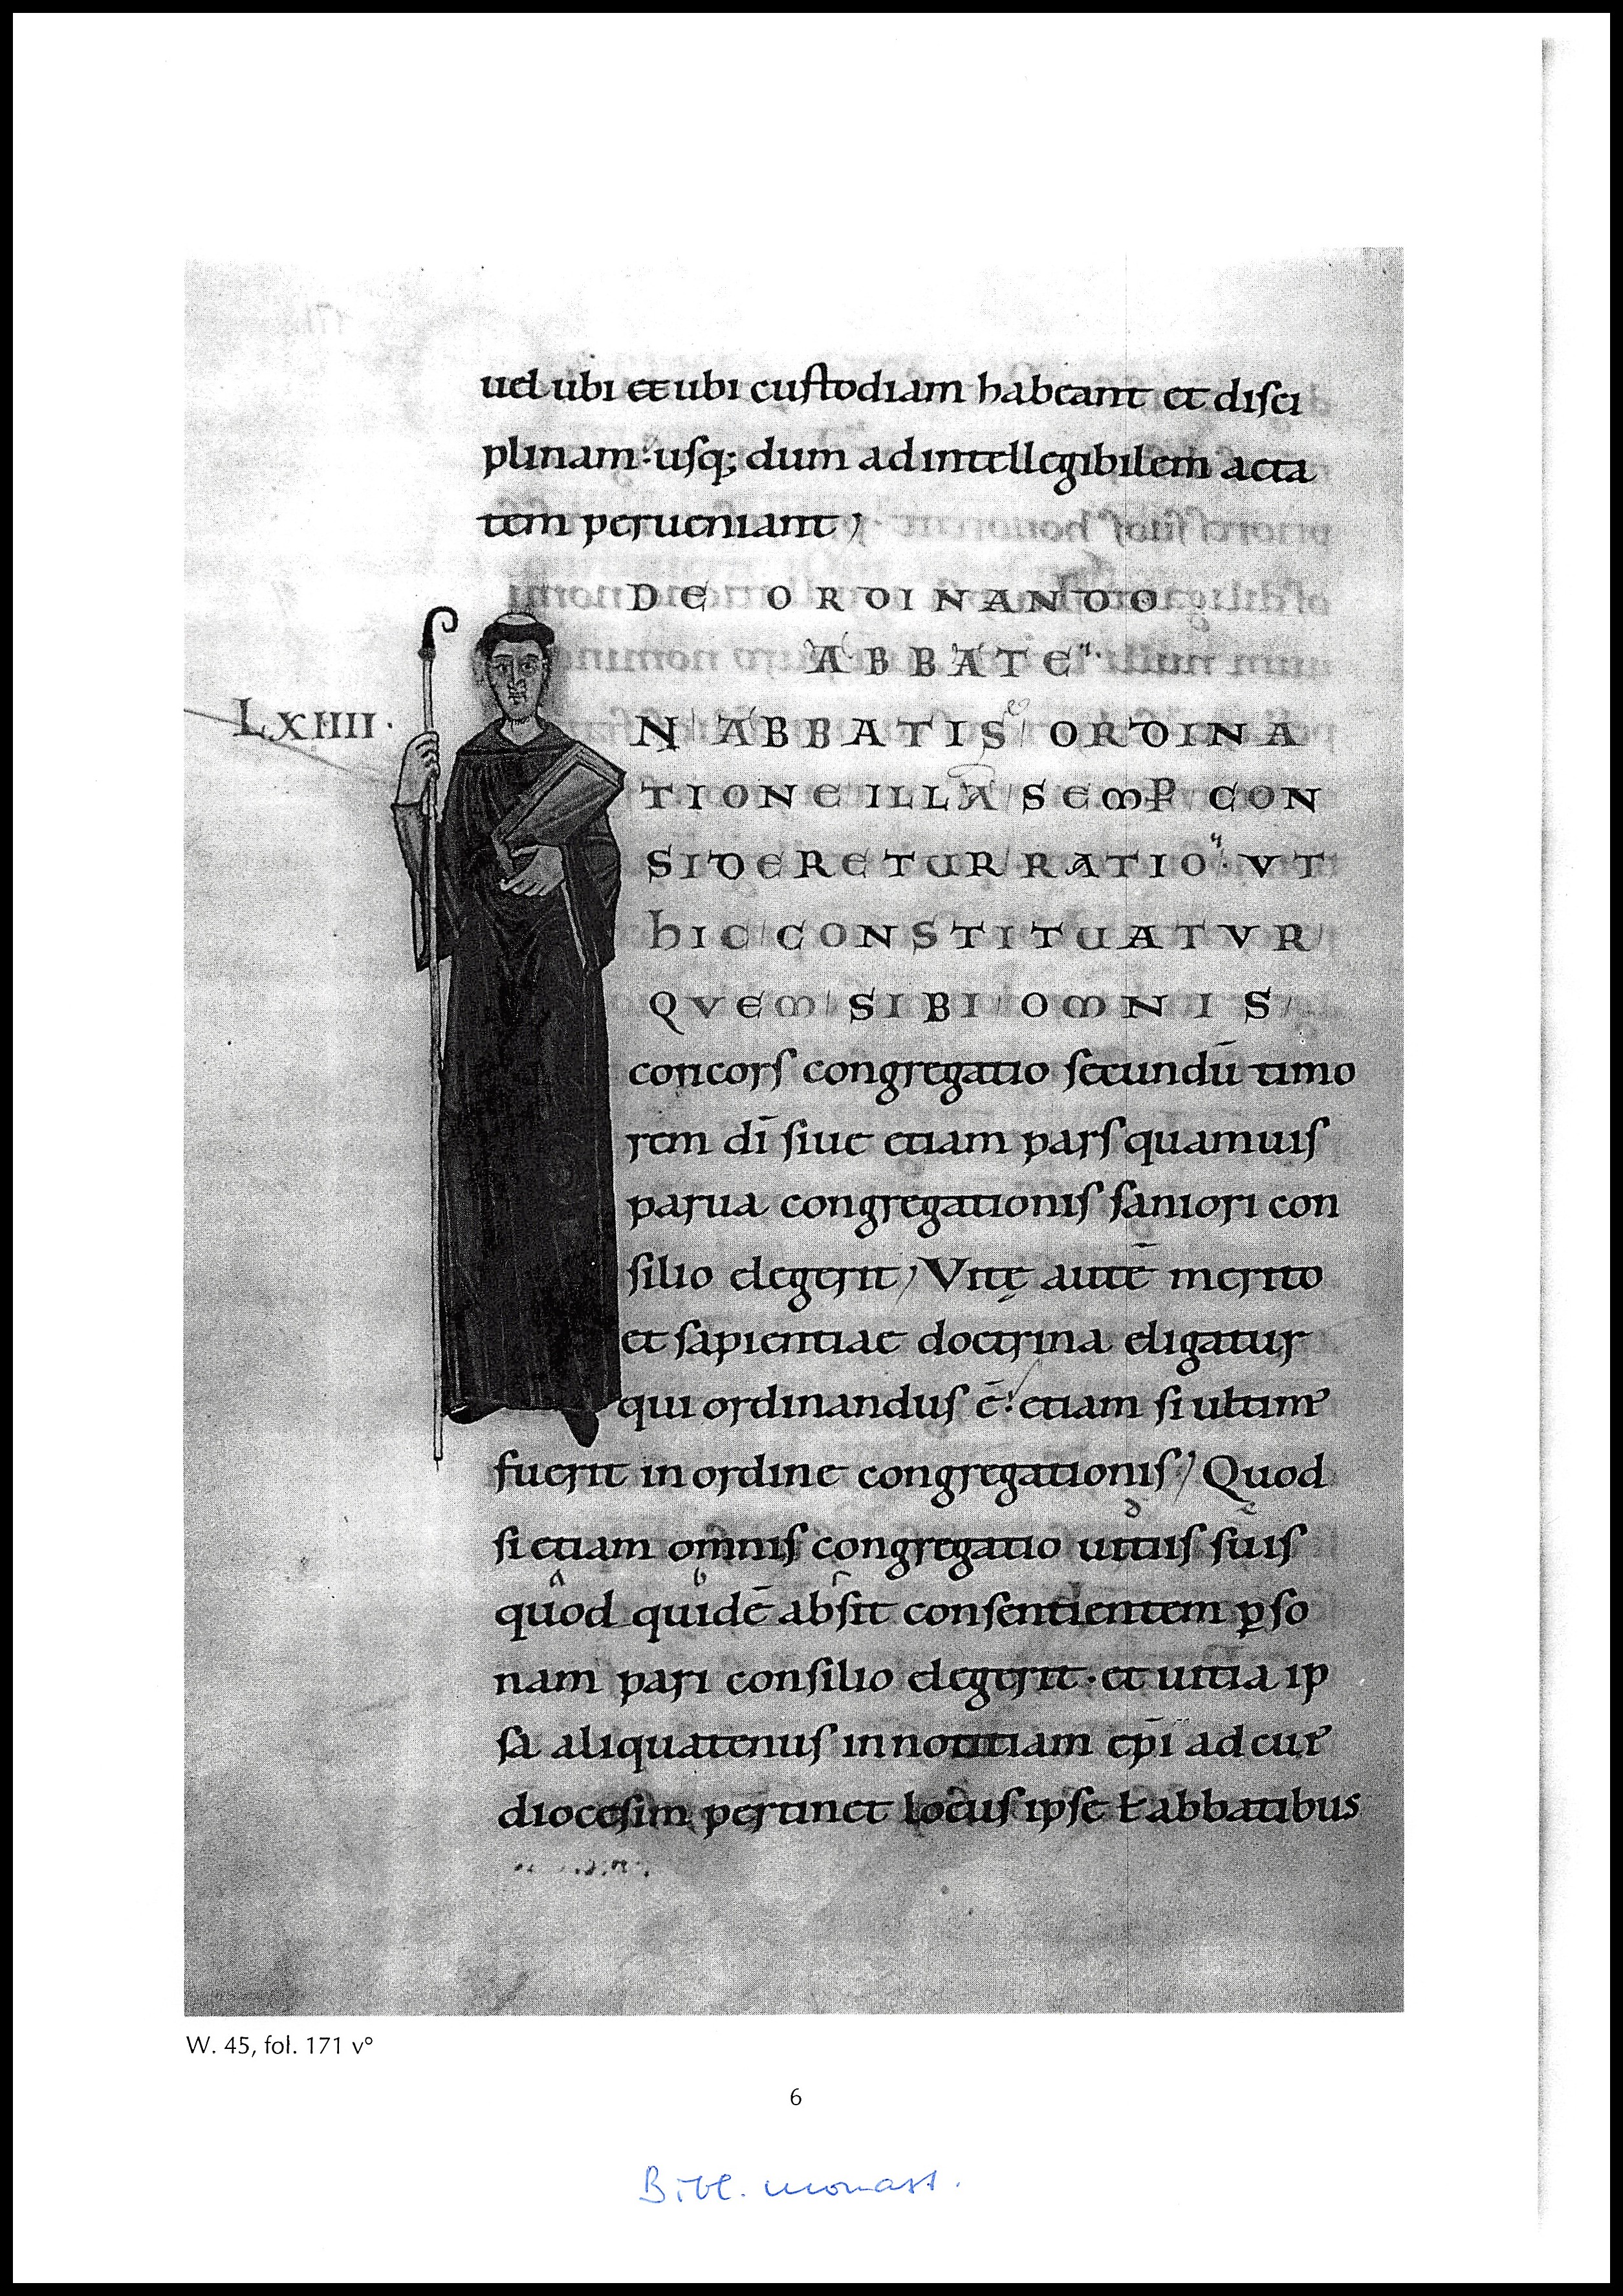 uel ubi et ubi custodiam habeant et disci
plinam: usq; dum ad intellegibilem aeta
tem perueniant;
DE ORDINANDO
ABBATE
LXIIII.
N ABBATIS ORDINA
TIONE ILLA SEMꝑ CON
SIDERETUR RATIO. VT
hIC CONSTITUATVR
QVEM SIBI OMNIS
concors congregatio secundū timo
rem dī siue etiam pars quamuis
parua congregationis saniori con
silio elegerit; Vitę autē merito
et sapientiae doctrina eligatur
qui ordinandus ē: etiam si ultim'
fuerit in ordine congregationis; Quod
si etiam omnis congregatio uitiis suis
quod quidē absit consentientem ꝑso
nam pari consilio elegerit. et uitia ip
sa aliquatenus in notitiam epī ad cui'
diocesim pertinet locus ipse ł abbatibus
W. 45, fol. 171 v°
6
Bibl. monast.